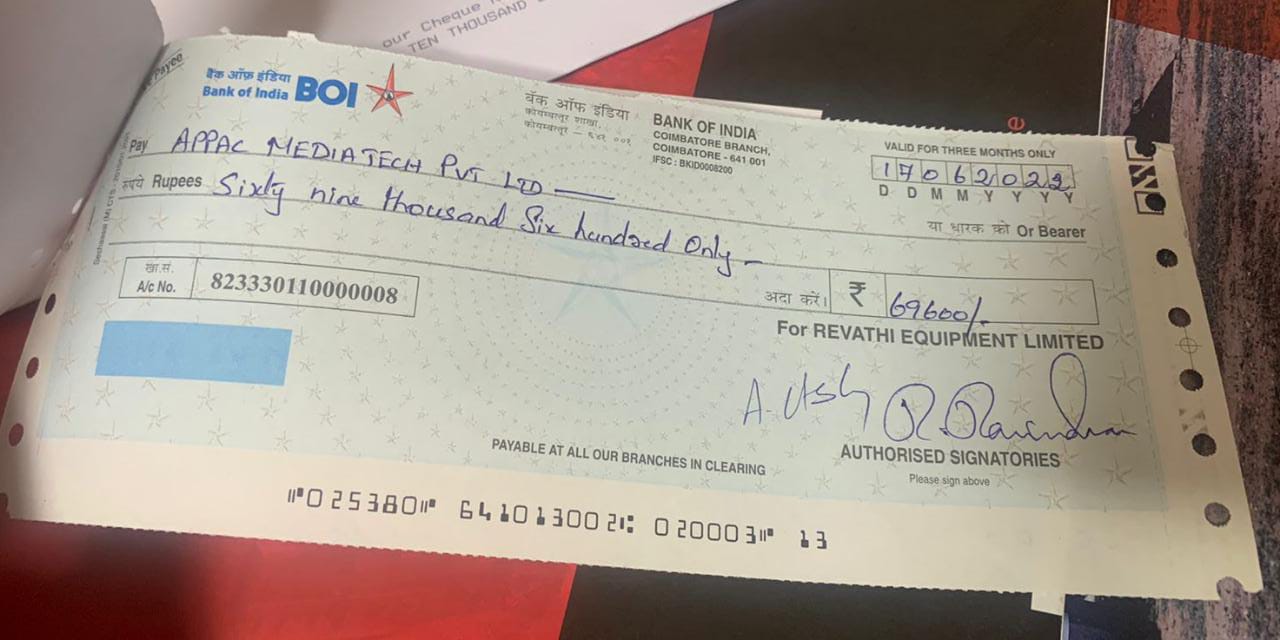 our Cheque
TEN THOUSAND
Payee
बैंक ऑफ़ इंडिया
Bank of India BOI
बैंक ऑफ इंडिया
कोयम्बत्तूर शाखा,
कोयम्बत्तूर – ६४१ ००१
BANK OF INDIA
COIMBATORE BRANCH,
COIMBATORE - 641 001
IFSC : BKID0008200
VALID FOR THREE MONTHS ONLY
17062022
D D M M Y Y Y Y
Pay APPAC MEDIATECH PVT LTD
या धारक को Or Bearer
रुपये Rupees Sixty nine thousand Six hundred Only -
अदा करें। ₹ 69600/-
खा.सं.
A/c No. 823330110000008
For REVATHI EQUIPMENT LIMITED
R. Ravindran
AUTHORISED SIGNATORIES
Please sign above
PAYABLE AT ALL OUR BRANCHES IN CLEARING
⑈025380⑈ 641013002⑆ 020003⑈ 13